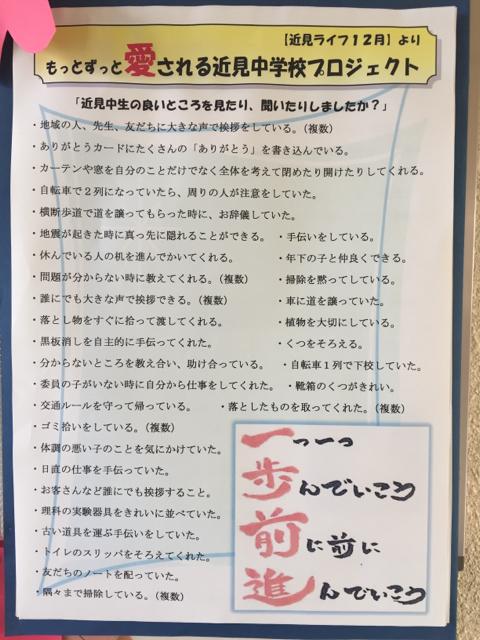 【近見ライフ12月】より
もっとずっと愛される近見中学校プロジェクト
「近見中生の良いところを見たり、聞いたりしましたか？」
・地域の人、先生、友だちに大きな声で挨拶をしている。（複数）
・ありがとうカードにたくさんの「ありがとう」を書き込んでいる。
・カーテンや窓を自分のことだけでなく全体を考えて閉めたり開けたりしてくれる。
・自転車で２列になっていたら、周りの人が注意をしていた。
・横断歩道で道を譲ってもらった時に、お辞儀していた。
・地震が起きた時に真っ先に隠れることができる。 ・手伝いをしている。
・休んでいる人の机を進んでかいてくれる。 ・年下の子と仲良くできる。
・問題が分からない時に教えてくれる。（複数） ・掃除を黙ってしている。
・誰にでも大きな声で挨拶できる。（複数） ・車に道を譲っていた。
・落とし物をすぐに拾って渡してくれる。 ・植物を大切にしている。
・黒板消しを自主的に手伝ってくれた。 ・くつをそろえる。
・分からないところを教え合い、助け合っている。 ・自転車１列で下校していた。
・委員の子がいない時に自分から仕事をしてくれた。 ・靴箱のくつがきれい。
・交通ルールを守って帰っている。 ・落としたものを取ってくれた。（複数）
・ゴミ拾いをしている。（複数）
・体調の悪い子のことを気にかけていた。
・日直の仕事を手伝っていた。
・お客さんなど誰にでも挨拶すること。
・理科の実験器具をきれいに並べていた。
・古い道具を運ぶ手伝いをしていた。
・トイレのスリッパをそろえてくれた。
・友だちのノートを配っていた。
・隅々まで掃除している。（複数）
一つ一つ
歩んでいこう
前に前に
進んでいこう